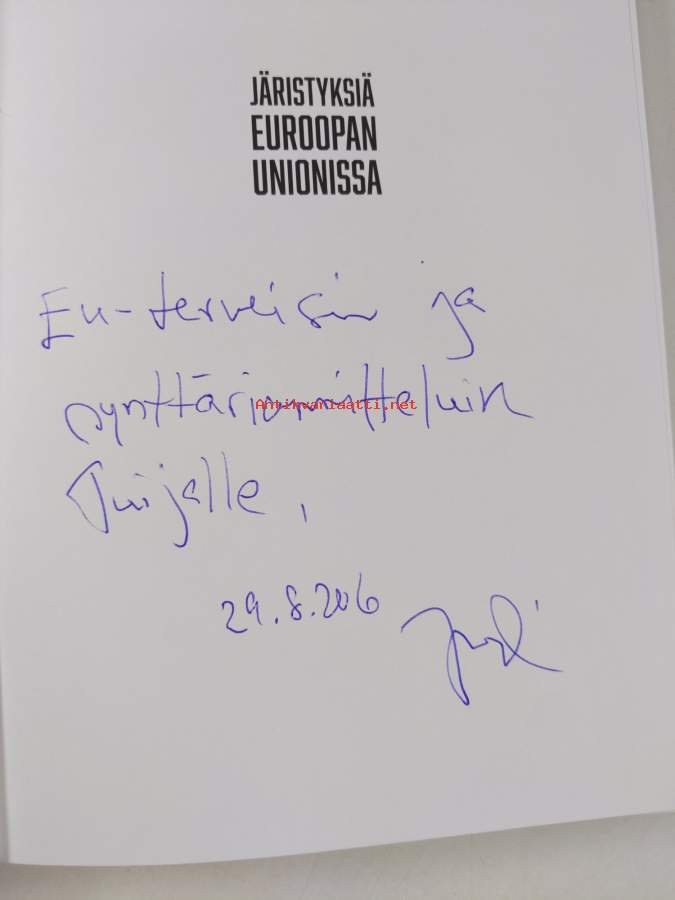 JÄRISTYKSIÄ
EUROOPAN
UNIONISSA
Eu-terveisin ja
synttärionnitteluin
Antikvariaatti.net
Tuijalle,
29.8.2016